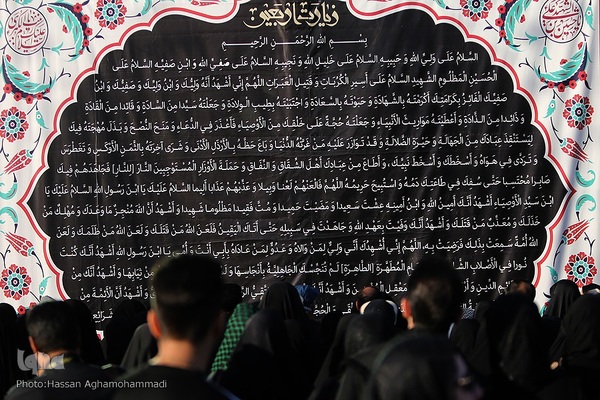 زیارت اربعین
بِسْمِ اللهِ الرَّحْمَنِ الرَّحِيمِ
السَّلامُ عَلَى وَلِيِّ اللهِ وَ حَبِيبِهِ السَّلامُ عَلَى خَلِيلِ اللهِ وَ نَجِيبِهِ السَّلامُ عَلَى صَفِيِّ اللهِ وَ ابْنِ صَفِيِّهِ السَّلامُ عَلَى
الْحُسَيْنِ الْمَظْلُومِ الشَّهِيدِ السَّلامُ عَلَى أَسِيرِ الْكُرُبَاتِ وَ قَتِيلِ الْعَبَرَاتِ اللَّهُمَّ إِنِّي أَشْهَدُ أَنَّهُ وَلِيُّكَ وَ ابْنُ وَلِيِّكَ وَ صَفِيُّكَ وَ ابْنُ
صَفِيِّكَ الْفَائِزُ بِكَرَامَتِكَ أَكْرَمْتَهُ بِالشَّهَادَةِ وَ حَبَوْتَهُ بِالسَّعَادَةِ وَ اجْتَبَيْتَهُ بِطِيبِ الْوِلادَةِ وَ جَعَلْتَهُ سَيِّدا مِنَ السَّادَةِ وَ قَائِدا مِنَ الْقَادَةِ
وَ ذَائِدا مِنَ الذَّادَةِ وَ أَعْطَيْتَهُ مَوَارِيثَ الْأَنْبِيَاءِ وَ جَعَلْتَهُ حُجَّةً عَلَى خَلْقِكَ مِنَ الْأَوْصِيَاءِ فَأَعْذَرَ فِي الدُّعَاءِ وَ مَنَحَ النُّصْحَ وَ بَذَلَ مُهْجَتَهُ فِيكَ
لِيَسْتَنْقِذَ عِبَادَكَ مِنَ الْجَهَالَةِ وَ حَيْرَةِ الضَّلالَةِ وَ قَدْ تَوَازَرَ عَلَيْهِ مَنْ غَرَّتْهُ الدُّنْيَا وَ بَاعَ حَظَّهُ بِالْأَرْذَلِ الْأَدْنَى وَ شَرَى آخِرَتَهُ بِالثَّمَنِ الْأَوْكَسِ وَ تَغَطْرَسَ
وَ تَرَدَّى فِي هَوَاهُ وَ أَسْخَطَكَ وَ أَسْخَطَ نَبِيَّكَ ، وَ أَطَاعَ مِنْ عِبَادِكَ أَهْلَ الشِّقَاقِ وَ النِّفَاقِ وَ حَمَلَةَ الْأَوْزَارِ الْمُسْتَوْجِبِينَ النَّارَ [لِلنَّارِ] فَجَاهَدَهُمْ فِيكَ
صَابِرا مُحْتَسِبا حَتَّى سُفِكَ فِي طَاعَتِكَ دَمُهُ وَ اسْتُبِيحَ حَرِيمُهُ اللَّهُمَّ فَالْعَنْهُمْ لَعْنا وَبِيلا وَ عَذِّبْهُمْ عَذَابا أَلِيما السَّلامُ عَلَيْكَ يَا ابْنَ رَسُولِ اللهِ السَّلامُ عَلَيْكَ يَا
ابْنَ سَيِّدِ الْأَوْصِيَاءِ أَشْهَدُ أَنَّكَ أَمِينُ اللهِ وَ ابْنُ أَمِينِهِ عِشْتَ سَعِيدا وَ مَضَيْتَ حَمِيدا وَ مُتَّ فَقِيدا مَظْلُوما شَهِيدا وَ أَشْهَدُ أَنَّ اللهَ مُنْجِزٌ مَا وَعَدَكَ وَ مُهْلِكٌ مَنْ
خَذَلَكَ وَ مُعَذِّبٌ مَنْ قَتَلَكَ وَ أَشْهَدُ أَنَّكَ وَفَيْتَ بِعَهْدِ اللهِ وَ جَاهَدْتَ فِي سَبِيلِهِ حَتَّى أَتَاكَ الْيَقِينُ فَلَعَنَ اللهُ مَنْ قَتَلَكَ وَ لَعَنَ اللهُ مَنْ ظَلَمَكَ وَ لَعَنَ
اللهُ أُمَّةً سَمِعَتْ بِذَلِكَ فَرَضِيَتْ بِهِ، اللَّهُمَّ إِنِّي أُشْهِدُكَ أَنِّي وَلِيٌّ لِمَنْ وَالاهُ وَ عَدُوٌّ لِمَنْ عَادَاهُ بِأَبِي أَنْتَ وَ أُمِّي يَا ابْنَ رَسُولِ اللهِ أَشْهَدُ أَنَّكَ كُنْتَ
نُورا فِي الْأَصْلابِ الْمُطَهَّرَةِ [الطَّاهِرَةِ] لَمْ تُنَجِّسْكَ الْجَاهِلِيَّةُ بِأَنْجَاسِهَا وَ مِنْ ثِيَابِهَا وَ أَشْهَدُ أَنَّكَ مِنْ
الدِّينِ وَ مَعْقِلِ وَ أَشْهَدُ أَنَّ الْأَئِمَّةَ مِنْ
Photo:Hassan Aghamohammadi